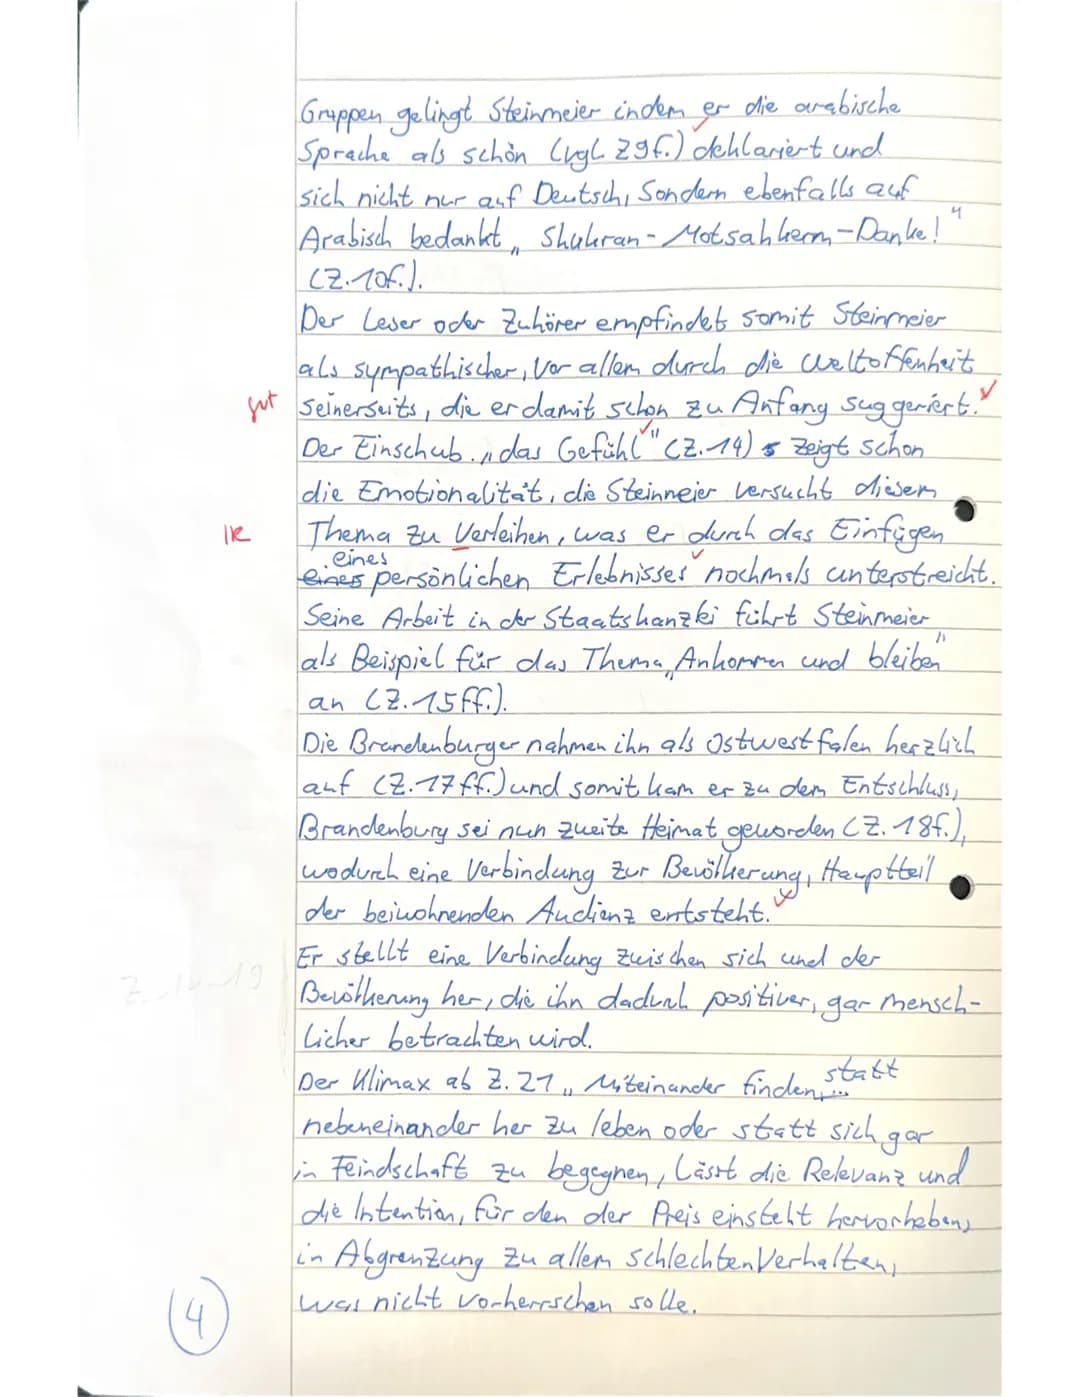 Gruppen gelingt Steinmeier indem er die arabische
Sprache als schön (vgl. Z9f.) deklariert und
sich nicht nur auf Deutsch, Sondern ebenfalls auf
Arabisch bedankt „Shukran-Motsahkerm-Danke!"
(Z.10f.).
Der Leser oder Zuhörer empfindet somit Steinmeier
als sympathischer, vor allem durch die Weltoffenheit
gut seinerseits, die er damit schon zu Anfang suggeriert.
Der Einschub „das Gefühl" (Z.14) zeigt schon
die Emotionalität, die Steinmeier versucht diesem
Thema zu Verleihen, was er durch das Einfügen
eines
eines persönlichen Erlebnisses nochmals unterstreicht.
Seine Arbeit in der Staatskanzlei führt Steinmeier
als Beispiel für das Thema „Ankommen und bleiben"
an (Z.15ff.).
Die Brandenburger nahmen ihn als Ostwestfalen herzlich
auf (Z.17ff.) und somit kam er zu dem Entschluss,
Brandenburg sei nun zweite Heimat geworden (Z.18f.),
wodurch eine Verbindung zur Bevölkerung, Hauptteil
der beiwohnenden Audienz entsteht.
Er stellt eine Verbindung zwischen sich und der
Bevölkerung her, die ihn dadurch positiver, gar mensch-
licher betrachten wird.
Der Klimax ab Z.21 „Miteinander finden, statt
nebeneinander her zu leben oder statt sich gar
in Feindschaft zu begegnen, lässt die Relevanz und
die Intention, für den der Preis einsteht hervorheben,
in Abgrenzung zu allem schlechten Verhalten,
was nicht vorherrschen solle.
4